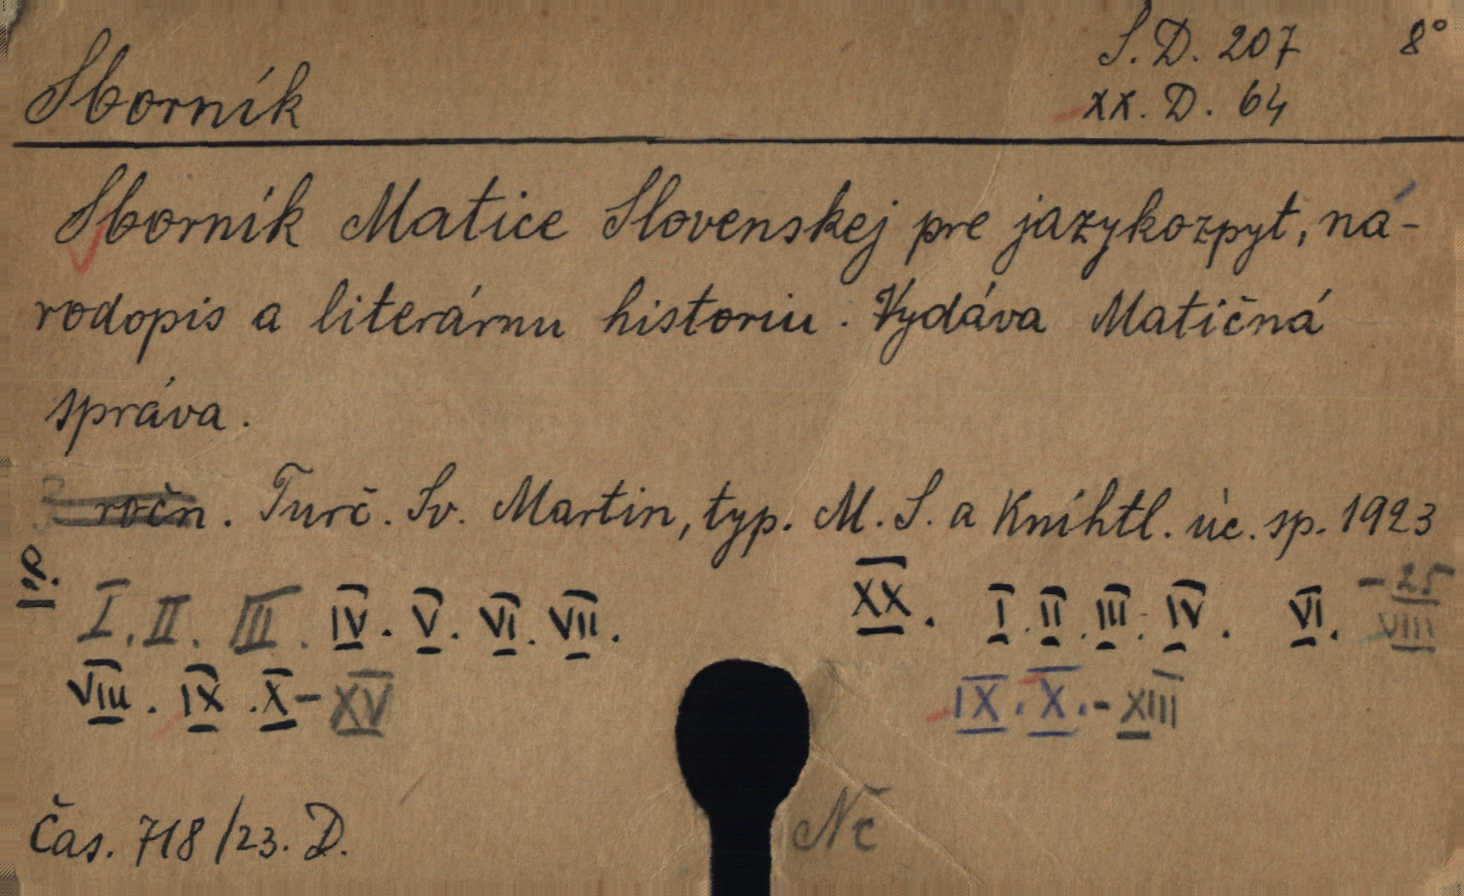 Sborník S.D. 207 8°
xx. D. 64
Sborník Matice Slovenskej pre jazykozpyt, ná-
rodopis a literárnu historiu. Vydáva Matičná
správa.
ročn. Turč. Sv. Martin, typ. M. S. a Kníhtl. úč. sp. 1923
-25
I. II. III. IV. V. VI. VII. XX. I. II. III. IV. VI. VIII
VIII. IX. X - XV IX. X. - XIII
Čas. 718/23. D. Nč